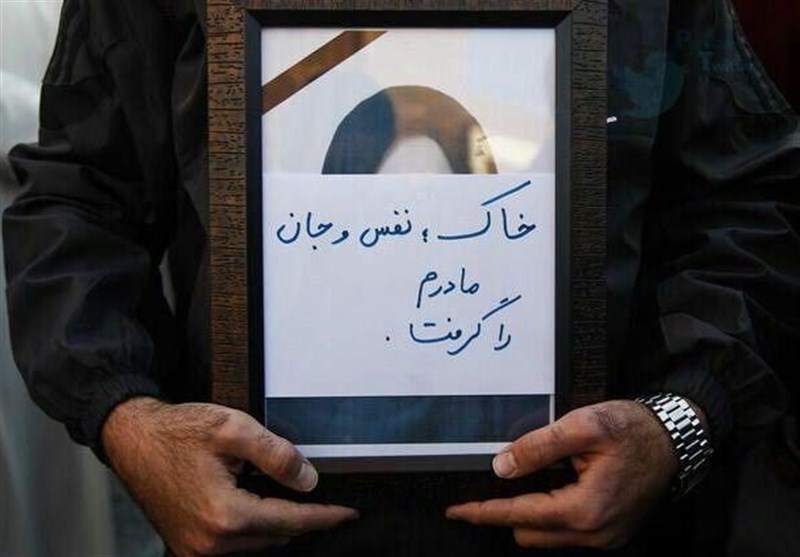 خاک ؛ نفس و جان
مادرم
را گرفت .